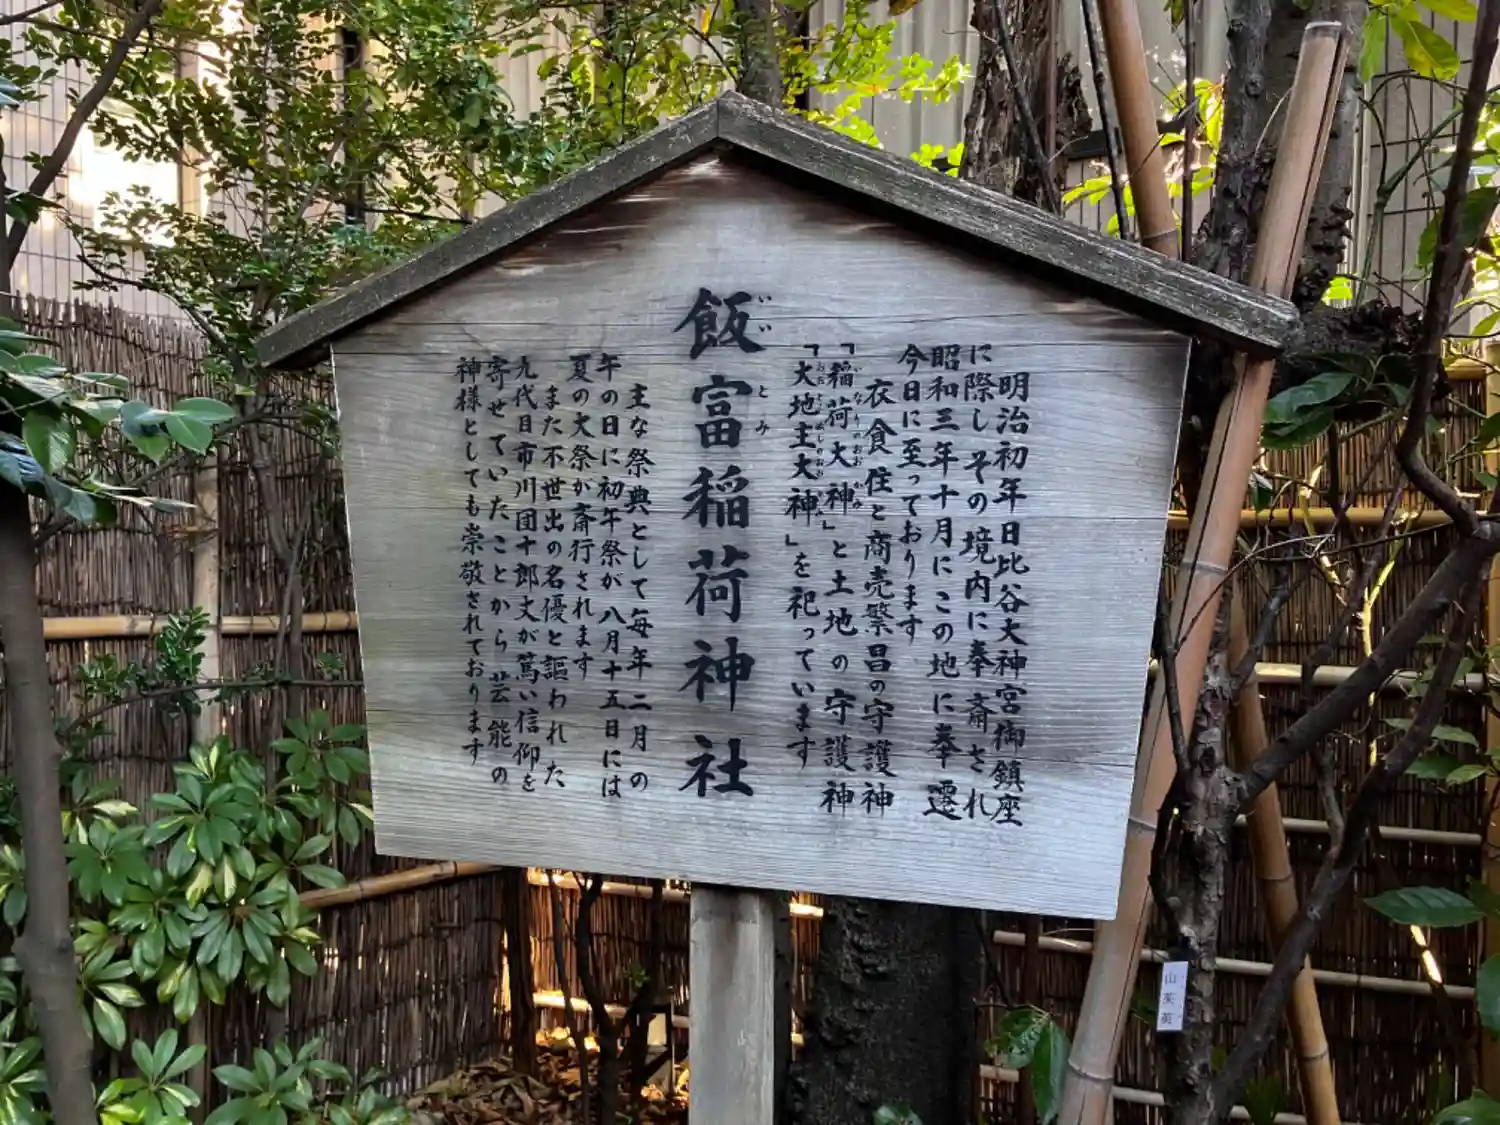 明治初年日比谷大神宮御鎮座
に際しその境内に奉斎され
昭和三年十月にこの地に奉遷
今日に至っております
衣食住と商売繁昌の守護神
「稲荷大神」と土地の守護神
いなりのおおかみ
「大地主大神」を祀っています
飯富稲荷神社
いいとみ
主な祭典として毎年二月の
午の日に初午祭が八月十五日には
夏の大祭が斎行されます
また不世出の名優と謳われた
九代目市川団十郎丈が篤い信仰を
寄せていたことから芸能の
神様としても崇敬されております
山茱萸